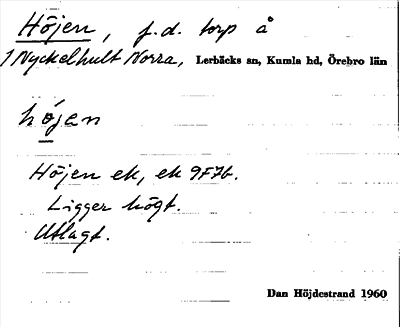 Höjen, f.d. torp å
1 Nyckelhult Norra, Lerbäcks sn, Kumla hd, Örebro län
hǿjen
Höjen ek, ek 9F7b.
Ligger högt.
Utlagt.
Dan Höjdestrand 1960